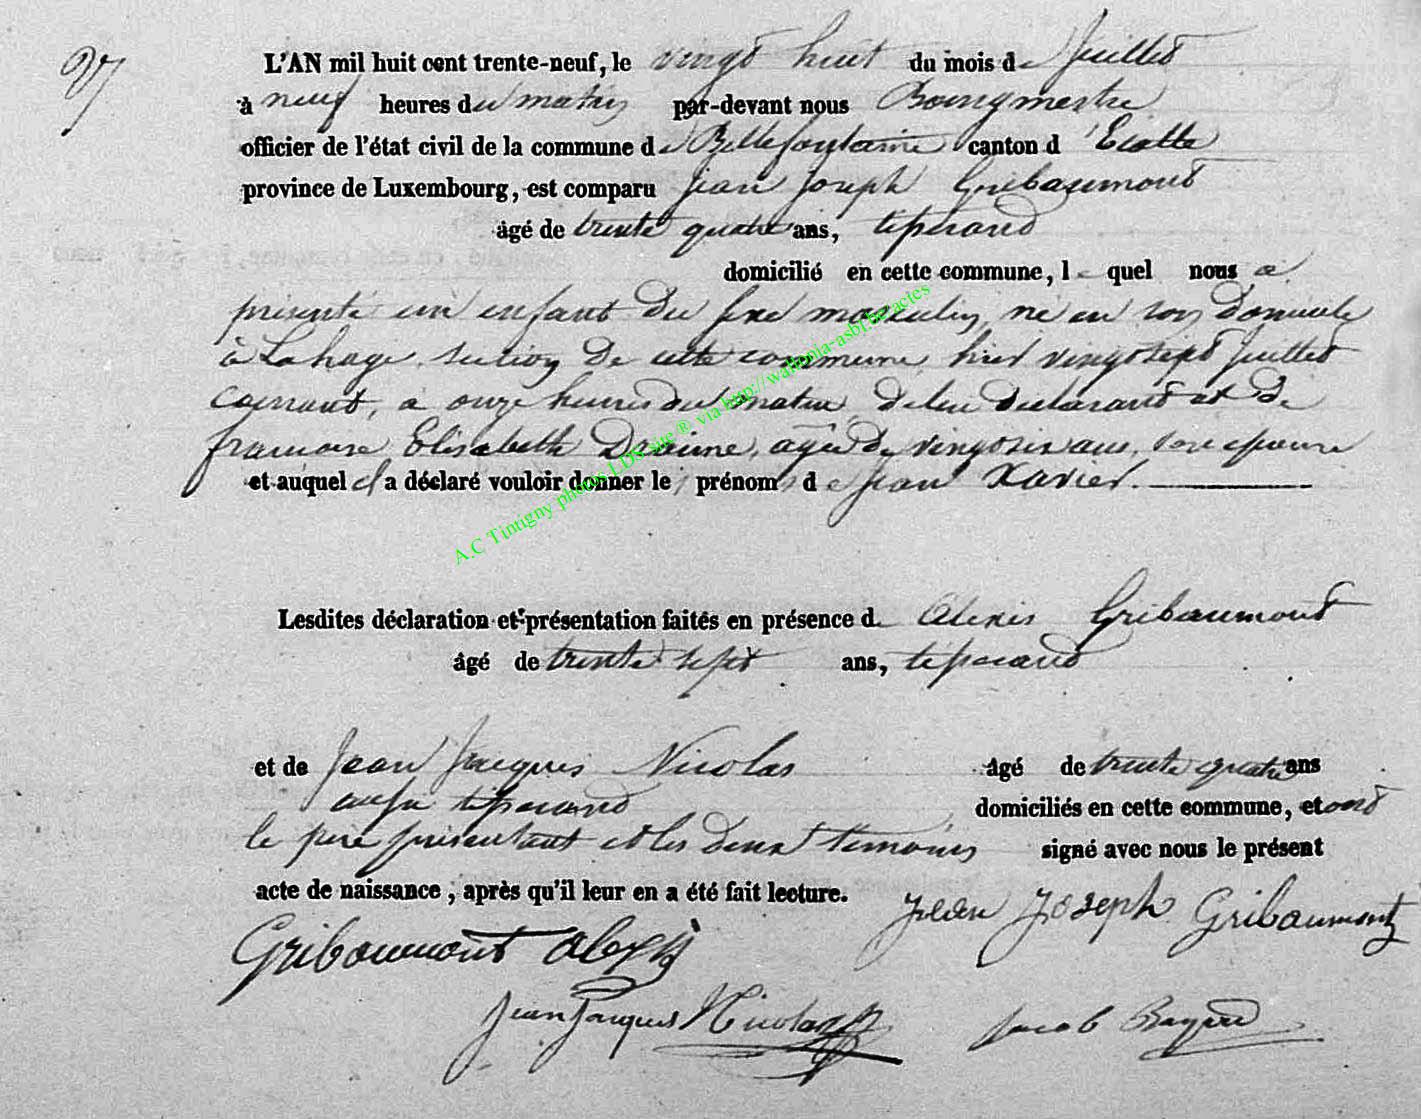 27
L'AN mil huit cent trente-neuf, le vingt huit du mois de Juillet
à neuf heures du matin par-devant nous Bourgmestre
officier de l'état civil de la commune de Bellefontaine canton d'Etalle
province de Luxembourg, est comparu Jean Joseph Gribaumont
âgé de trente quatre ans, tisserand
domicilié en cette commune, lequel nous a
présenté un enfant du sexe masculin, né en son Domicile
à Lahage, section de cette commune, hier vingt sept Juillet
courant, à onze heures du matin, de lui déclarant et de
françoise Elisabeth, agée de vingt six ans, son epouse
et auquel il a déclaré vouloir donner le prénom de Jean Xavier.
A.C Tintigny photos LDS site ® via http://wallonia-asbl.be/actes
Lesdites déclaration et présentation faites en présence d Alexis Gribaumont
âgé de trente sept ans, tisserand
et de Jean Jacques Nicolas âgé de trente quatre ans
aussi tisserand domiciliés en cette commune, et ont
le père présentant et les deux témoins signé avec nous le présent
acte de naissance, après qu'il leur en a été fait lecture.
Joseph Gribaumont
Gribaumont alexis
Jean Jacques Nicolas Jacob